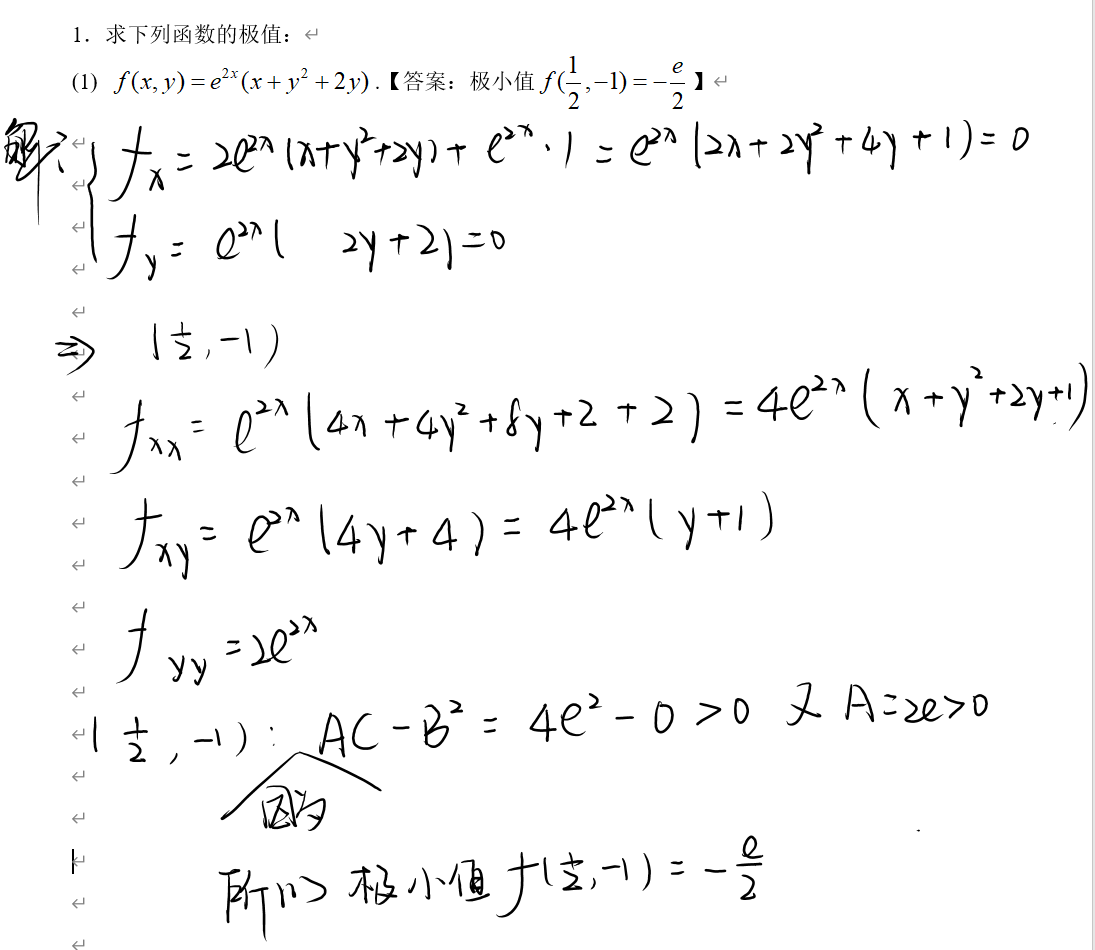 1. 求下列函数的极值：
(1) f(x, y) = e^{2x}(x + y² + 2y) .【答案：极小值 f(1/2, −1) = −e/2】
解： { f_x = 2e^{2x}(x+y²+2y) + e^{2x}·1 = e^{2x}(2x+2y²+4y+1) = 0
f_y = e^{2x}( 2y+2) = 0
⇒ (1/2, −1)
f_xx = e^{2x}(4x+4y²+8y+2+2) = 4e^{2x}(x+y²+2y+1)
f_xy = e^{2x}(4y+4) = 4e^{2x}(y+1)
f_yy = 2e^{2x}
(1/2, −1): AC−B² = 4e²−0 >0 又 A=2e>0
因为
所以 极小值 f(1/2, −1) = −e/2